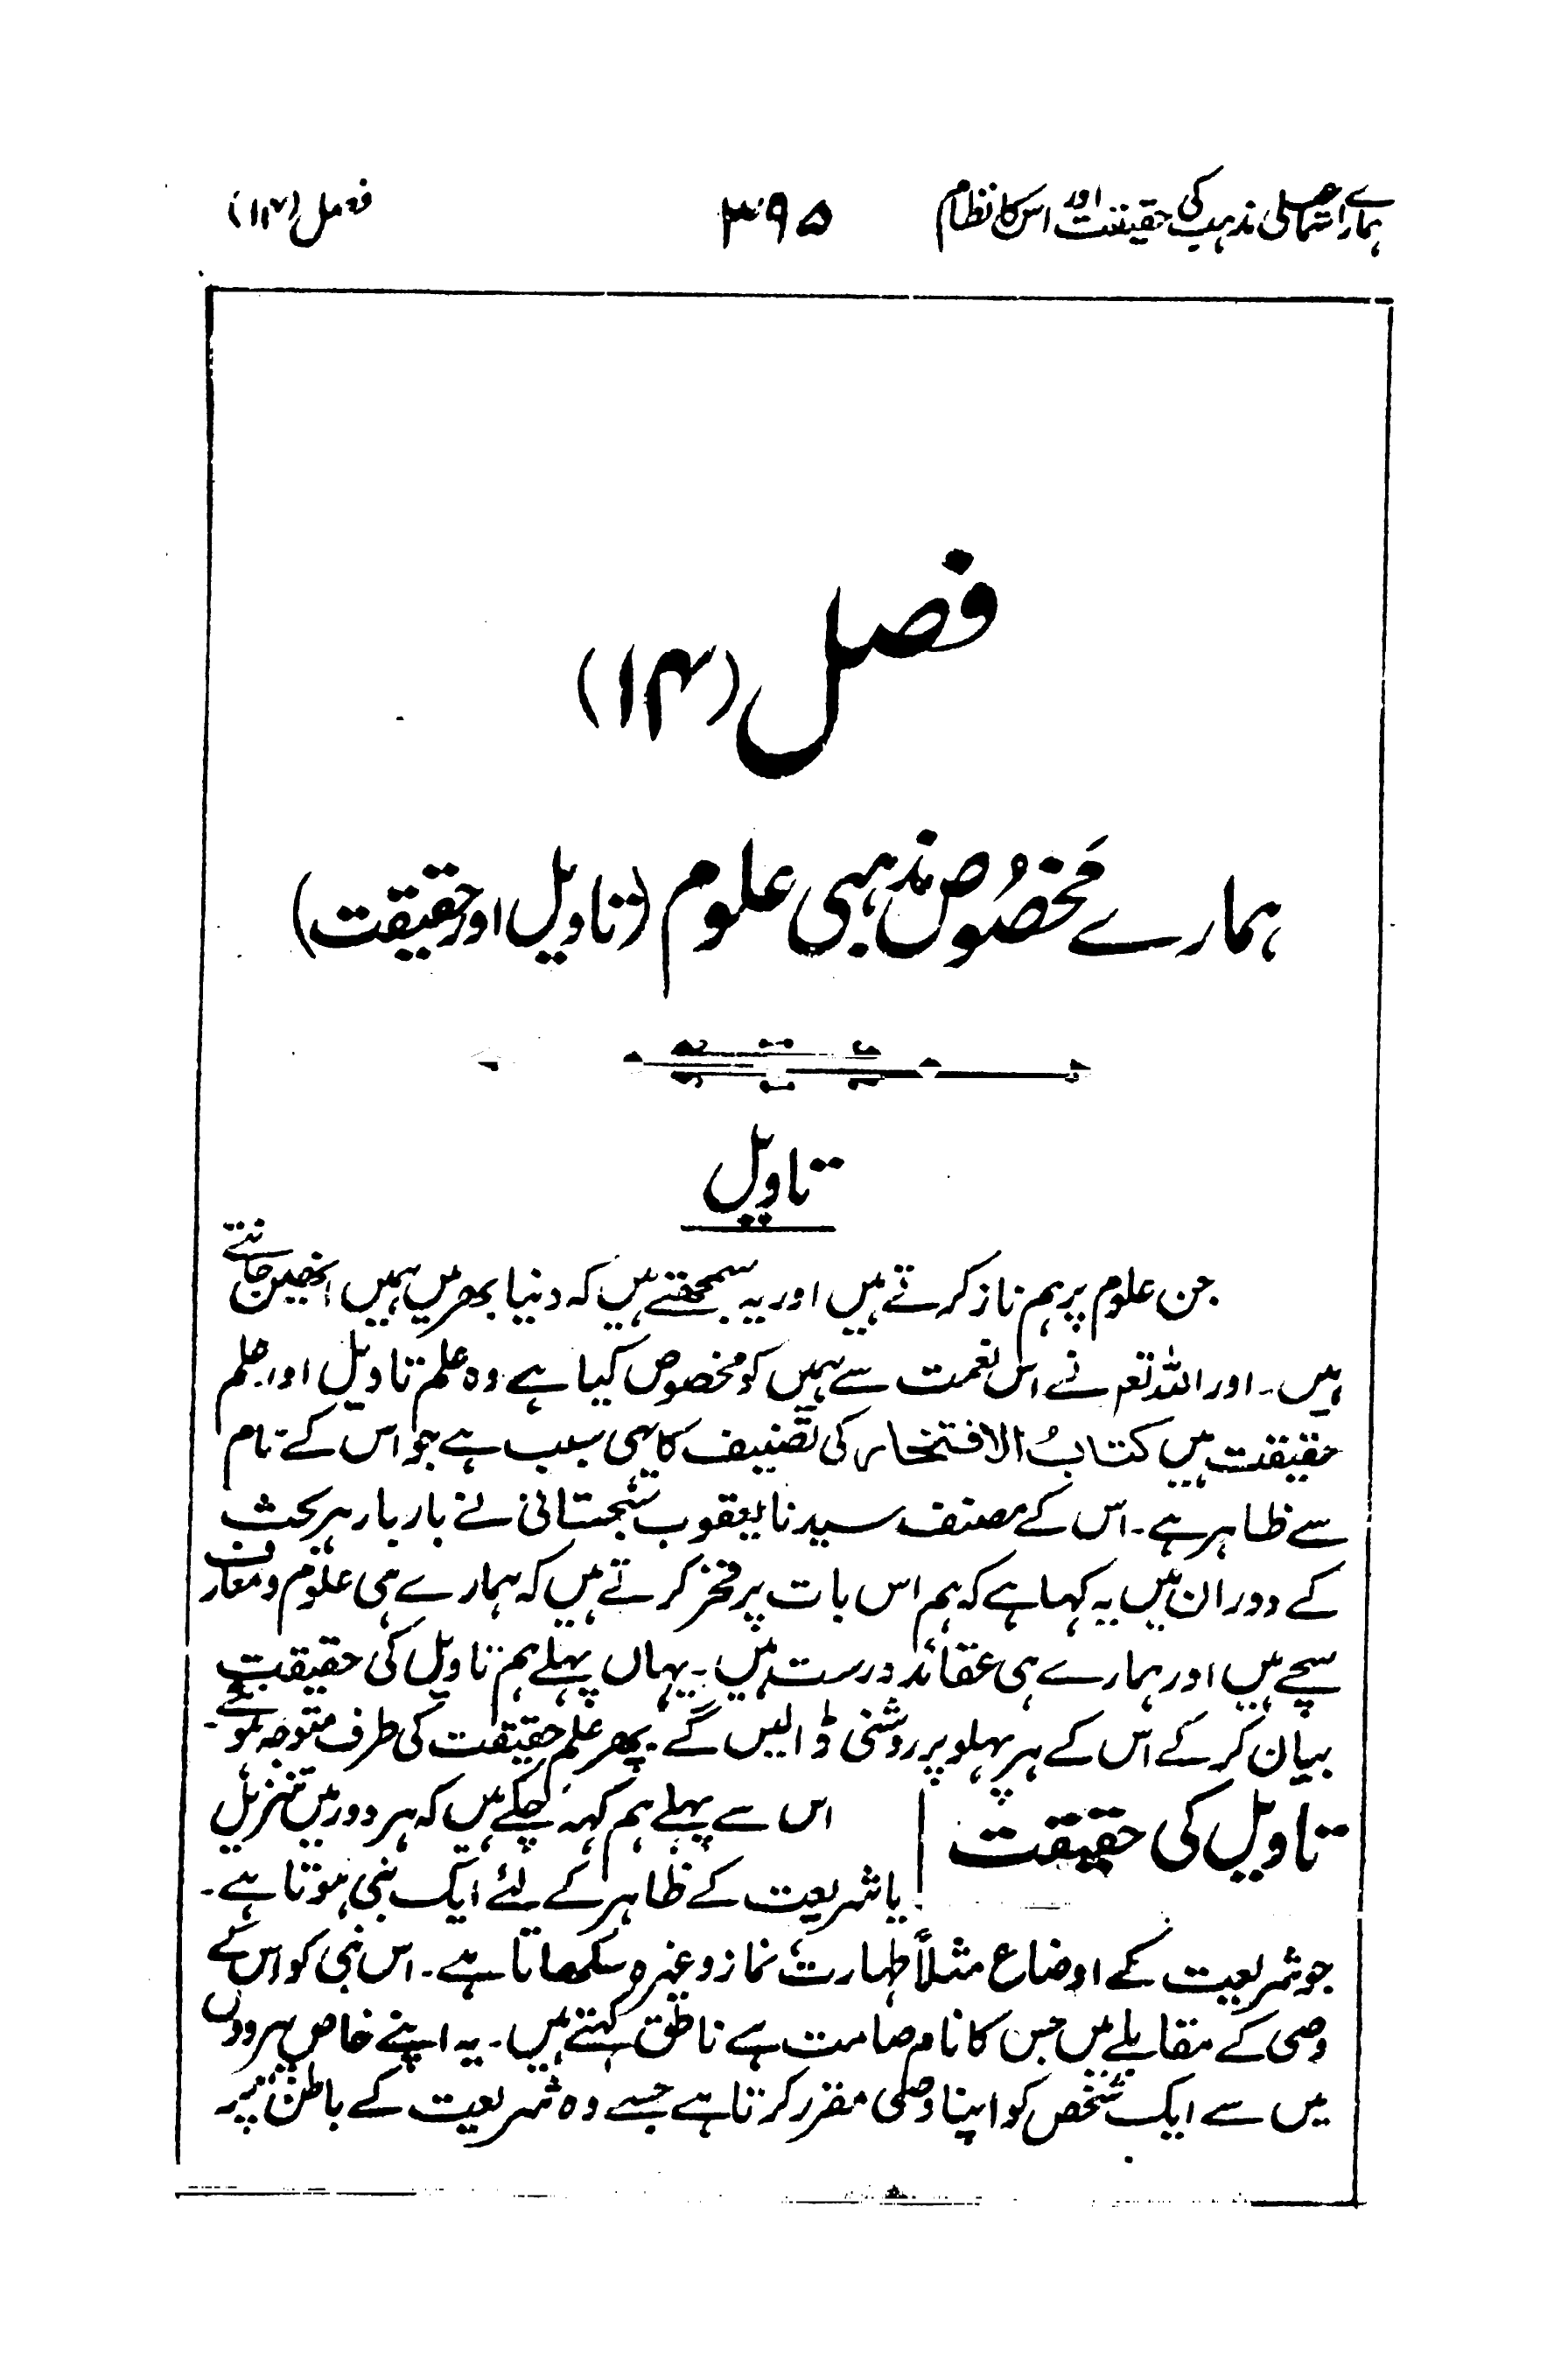 ہمارے اسماعیلی مذہب کی حقیقت اور اس کا نظام ۳۹۵ فصل (۱۴)
فصل (۱۴)
ہمارے مَخصُوص مذہبی علوم (تاویل اور حقیقت)
تاویل
جن علوم پر ہم ناز کرتے ہیں اور یہ سمجھتے ہیں کہ دنیا بھر میں ہمیں انھیں جانتے
ہیں۔ اور اللہ تعم نے اس نعمت سے ہمیں کو مخصوص کیا ہے وہ علم تاویل اور علم
حقیقت ہیں کتابُ الافتخار کی تصنیف کا یہی سبب ہے جو اس کے نام
سے ظاہر ہے۔ اس کے مصنف سیدنا یعقوب سجستانی نے بار بار ہر بحث
کے دوران میں یہ کہا ہے کہ ہم اس بات پر فخر کرتے ہیں کہ ہمارے ہی علوم و معارف
سچے ہیں اور ہمارے ہی عقائد درست ہیں۔ یہاں پہلے ہم تاویل کی حقیقت
بیان کر کے اس کے ہر پہلو پر روشنی ڈالیں گے۔ پھر علم حقیقت کی طرف متوجہ ہونگے۔
تاویل کی حقیقت
اس سے پہلے ہم کہہ چکے ہیں کہ ہر دور میں تنزیل
یا شریعت کے ظاہر کے لئے ایک نبی ہوتا ہے۔
جو شریعت کے اوضاع مثلاً طہارت، نماز وغیرہ سکھاتا ہے۔ اس نبی کو اس کے
وصی کے مقابلے میں جس کا نام صامت ہے ناطق کہتے ہیں۔ یہ اپنے خاص پیرووں
میں سے ایک شخص کو اپنا وصی مقرر کرتا ہے جسے وہ شریعت کے باطن پر